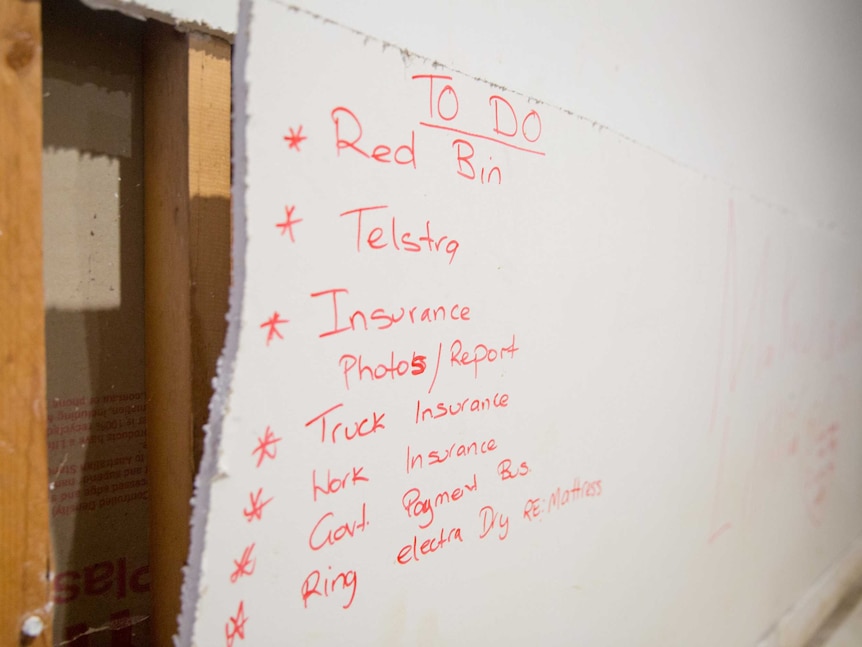 TO DO
* Red Bin
* Telstra
* Insurance
Photos/Report
* Truck Insurance
* Work Insurance
* Govt. Payment Bus.
* Ring electra Dry RE: Mattress